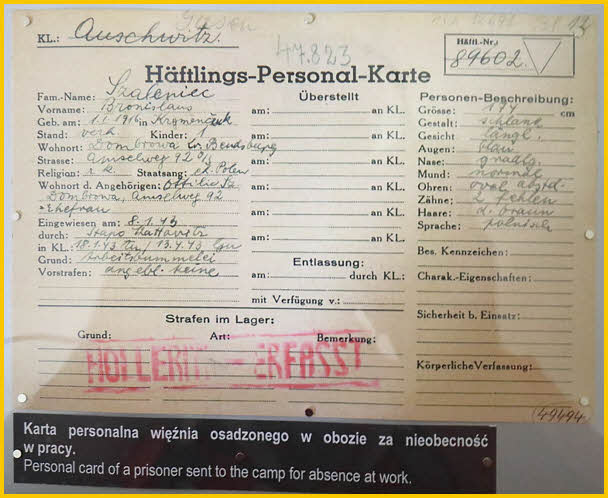 Gusen
KL.: Auschwitz.
47.823
Häftl.-Nr.:
89602.
Häftlings-Personal-Karte
Fam.-Name: Szaleniec
Vorname: Bronislaus
Geb. am: 1.1.1916 in Kremenczuk
Stand: verh. Kinder: 1
Wohnort: Dombrowa Kr. Bendsburg
Strasse: Amselweg 92
Religion: r.k. Staatsang: eh. Polen
Wohnort d. Angehörigen: Ottilie Sz.
Dombrowa, Amselweg 92
Ehefrau
Eingewiesen am: 8.1.43
durch: Stapo Kattowitz
in KL.: 18.1.43 13.4.43 Gu
Grund: Arbeitsbummelei
Vorstrafen: angebl. keine
Überstellt
am: an KL.
am: an KL.
am: an KL.
am: an KL.
am: an KL.
am: an KL.
Entlassung:
am: durch KL.:
mit Verfügung v.:
Personen-Beschreibung:
Grösse: cm
Gestalt: schlank
Gesicht: längl.
Augen: blau
Nase: gradlg.
Mund: normal
Ohren: oval abstd.
Zähne: 2 fehlen
Haare: d. braun
Sprache: polnisch
Bes. Kennzeichen:
Charak.-Eigenschaften:
Sicherheit b. Einsatz:
Körperliche Verfassung:
Strafen im Lager:
Grund: Art: Bemerkung:
HOLLERITH ERFASST
(49494
Karta personalna więźnia osadzonego w obozie za nieobecność
w pracy.
Personal card of a prisoner sent to the camp for absence at work.